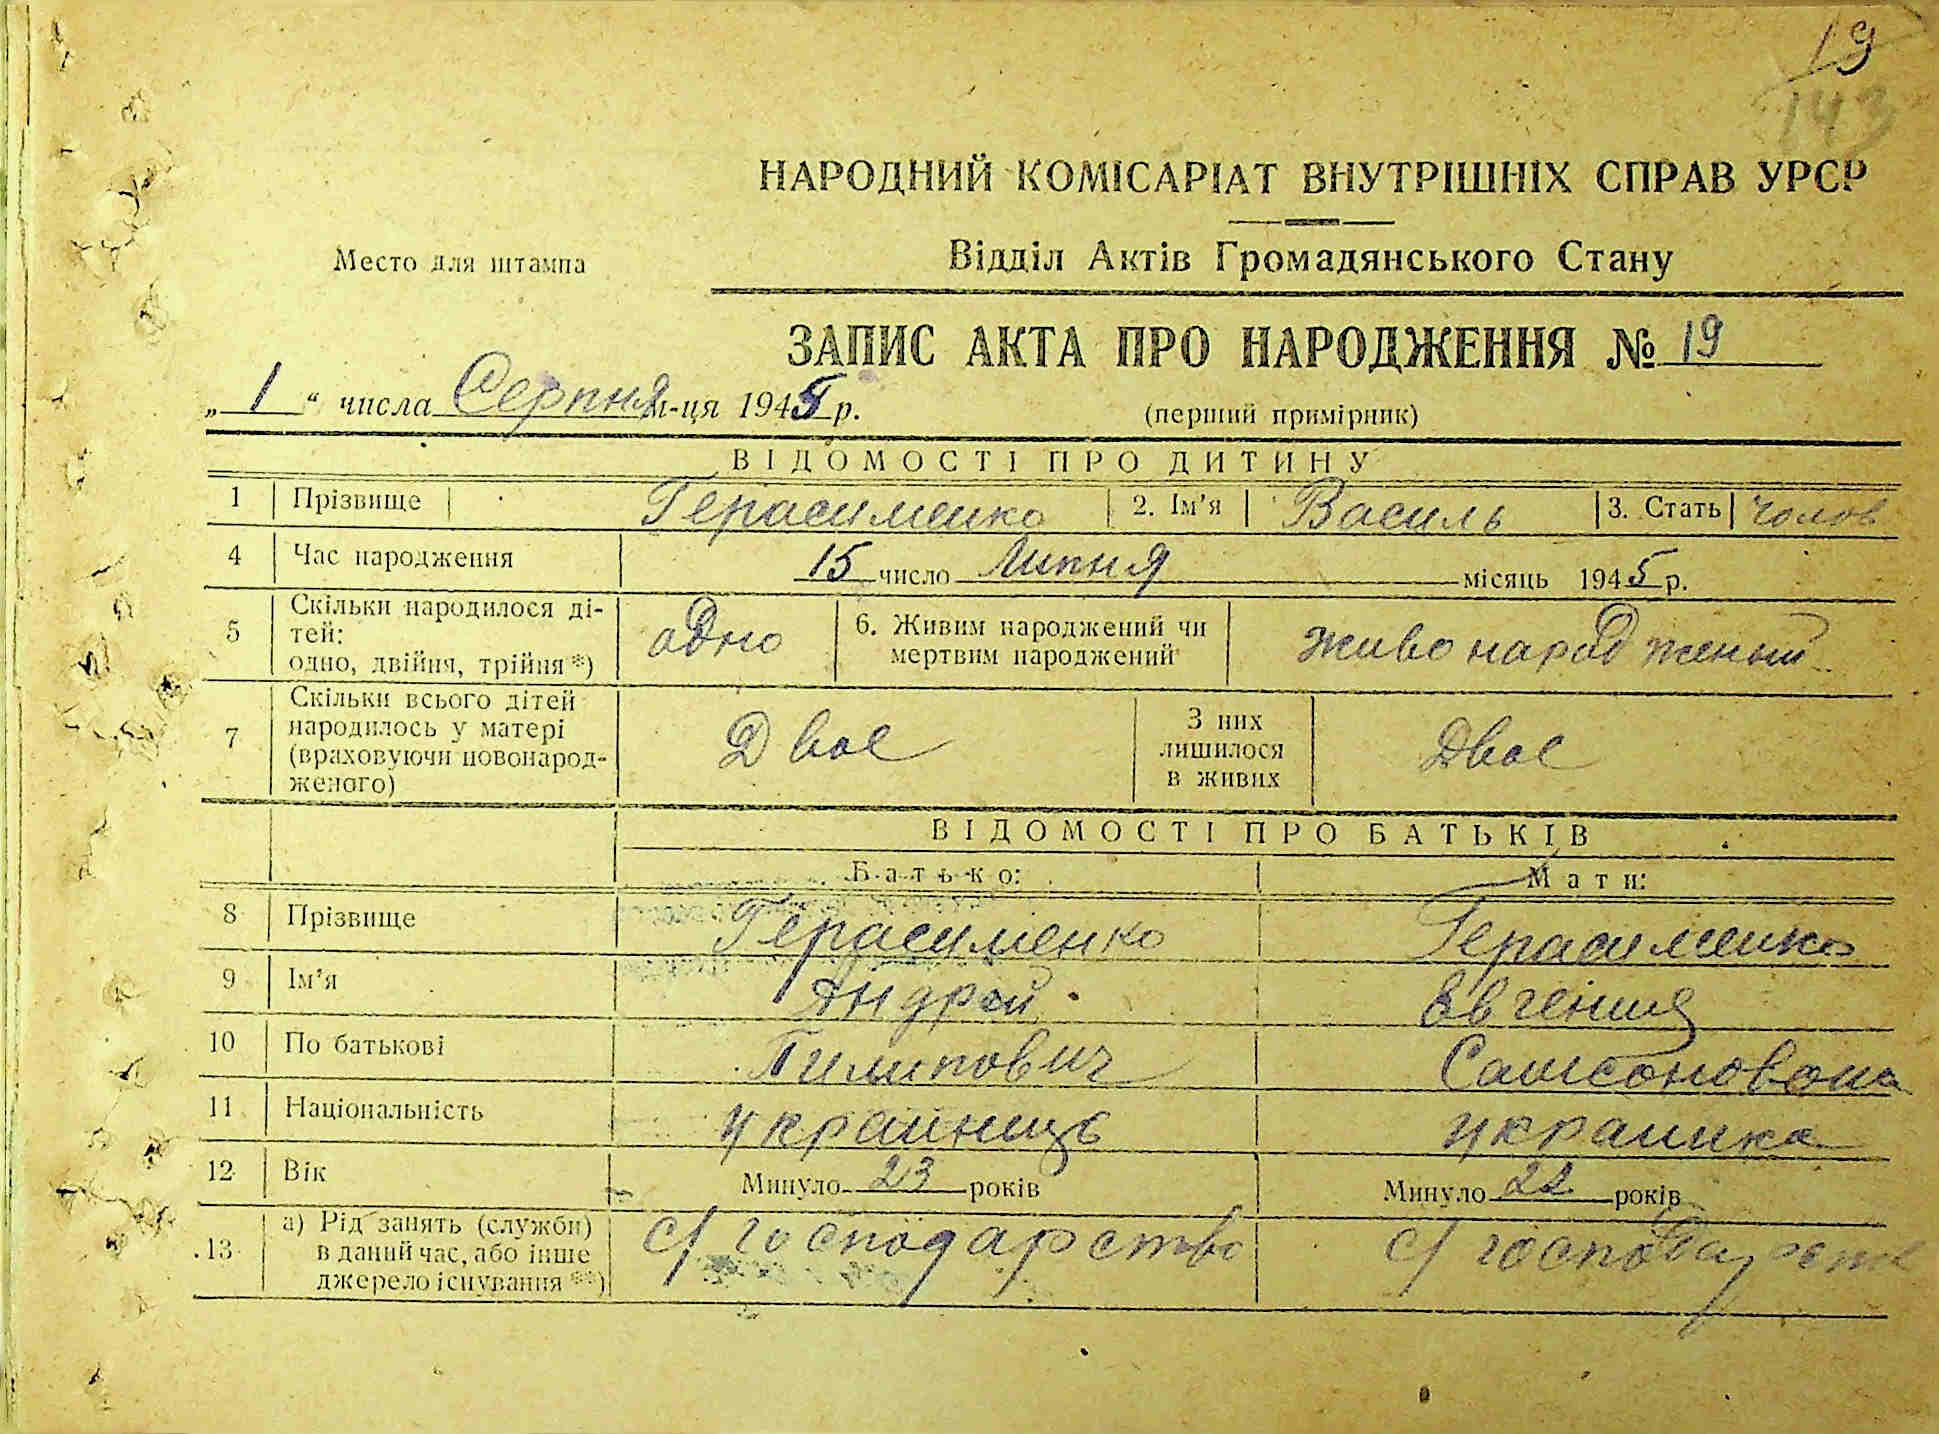 19
143
НАРОДНИЙ КОМІСАРІАТ ВНУТРІШНІХ СПРАВ УРСР
Место для штампа
Відділ Актів Громадянського Стану
ЗАПИС АКТА ПРО НАРОДЖЕННЯ № 19
„1“ числа Серпня м-ця 1945 р.
(перший примірник)
ВІДОМОСТІ ПРО ДИТИНУ
1 Прізвище Герасименко 2. Ім'я Василь 3. Стать чолов
4 Час народження 15 число Липня місяць 1945 р.
5 Скільки народилося дітей: одно, двійня, трійня*) одно 6. Живим народжений чи мертвим народжений живонароджений
7 Скільки всього дітей народилось у матері (враховуючи новонародженого) Двое З них лишилося в живих Двое
ВІДОМОСТІ ПРО БАТЬКІВ
Батько: Мати:
8 Прізвище Герасименко Герасименко
9 Ім'я Андрей Евгения
10 По батькові Пилипович Самсоновона
11 Національність українець українка
12 Вік Минуло 23 років Минуло 22 років
13 а) Рід занять (служби) в даний час, або інше джерело існування **) с/господарство с/господарств